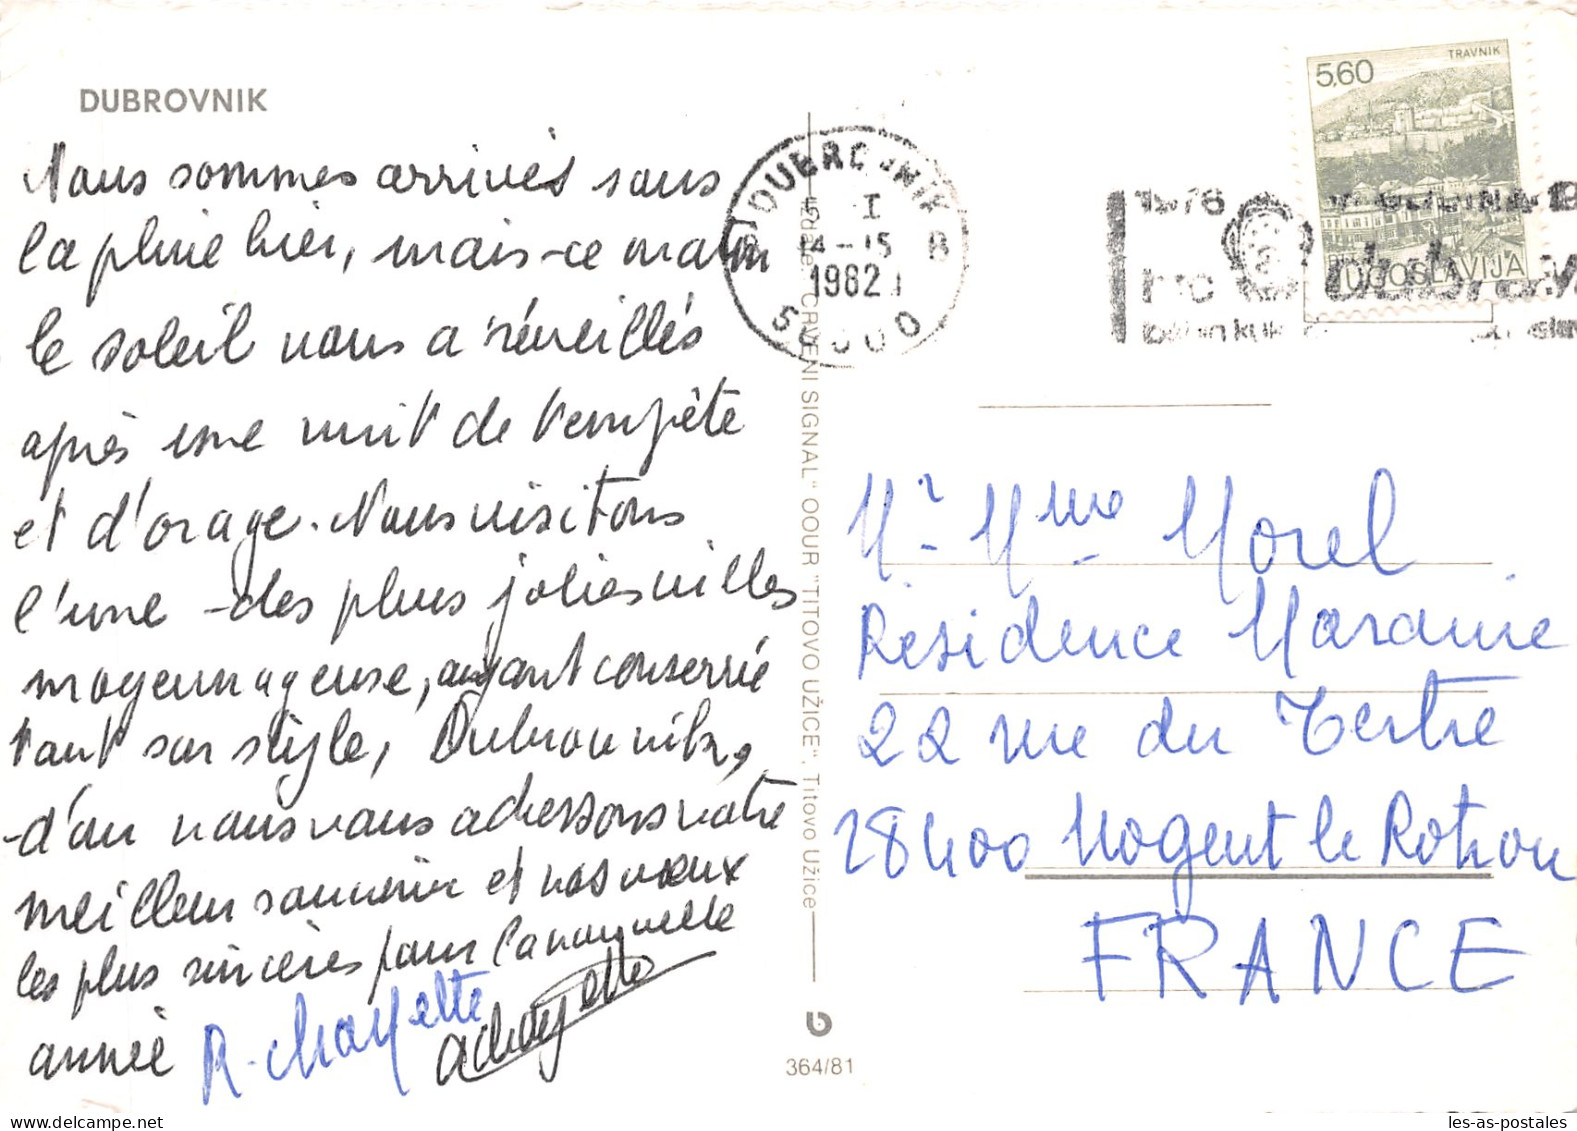 DUBROVNIK
Nous sommes arrivés sous
la pluie hier, mais ce matin
le soleil nous a réveillés
après une nuit de tempête
et d'orage. Nous visitons
l'une des plus jolies villes
moyennageuse, ayant conservé
tant son style, Dubrovnik,
d'où nous vous adressons notre
meilleur souvenir et nos vœux
les plus sincères pour la nouvelle
année
R. Choyette
AChoyette
Izdaje: "CRVENI SIGNAL" OOUR "TITOVO UŽICE", Titovo Užice
364/81
DUBROVNIK
I
14-15 B
1982
50000
1978
TRAVNIK
5,60
JUGOSLAVIJA
Mr. Mme Morel
Résidence Moraine
22 rue du Tertre
28400 Nogent le Rotrou
FRANCE
delcampe.net
les-as-postales